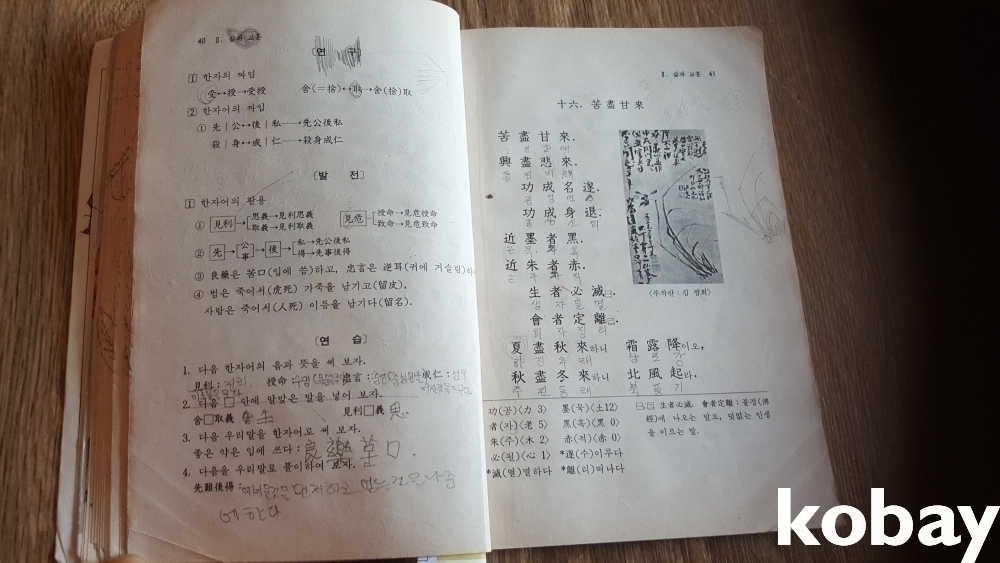 40 Ⅱ. 삶과 교훈
〔연 구〕
1 한자의 짜임
受↔授→受授 舍(=捨)↔取→舍(捨)取
2 한자어의 짜임
① 先｜公↔後｜私→先公後私
殺｜身↔成｜仁→殺身成仁
〔발 전〕
1 한자어의 활용
① 見利 思義→見利思義
取義→見利取義
見危 授命→見危授命
致命→見危致命
② 先 公 事 後 私→先公後私
得→先事後得
③ 良藥은 苦口(입에 씀)하고, 忠言은 逆耳(귀에 거슬림)하
④ 범은 죽어서(虎死) 가죽을 남기고(留皮),
사람은 죽어서(人死) 이름을 남기다(留名).
〔연 습〕
1. 다음 한자어의 음과 뜻을 써 보자.
見利: 授命: 忠言: 成仁:
2. 다음 □ 안에 알맞은 말을 넣어 보자.
舍□取義 舍生 見利□義 思
3. 다음 우리말을 한자어로 써 보자.
좋은 약은 입에 쓰다: 良藥苦口.
4. 다음을 우리말로 풀이하여 보자.
先難後得: 어려운것을 먼저하고 얻는것은 나중
에 한다
Ⅱ. 삶과 교훈 41
十六. 苦盡甘來
苦盡甘來.
興盡悲來.
功成名遂.
功成身退.
近墨者黑.
近朱者赤.
生者必滅.
會者定離.
夏盡秋來하니 霜露降이오,
하진추래 상로강
秋盡冬來하니 北風起라.
추진동래 북풍기
〈부작란: 김 정희〉
功(공)〈力 3〉 墨(묵)〈土12〉
者(자)〈老 5〉 黑(흑)〈黑 0〉
朱(주)〈木 2〉 赤(적)〈赤 0〉
必(필)〈心 1〉 *遂(수)이루다
*滅(멸)멸하다 *離(리)떠나다
生者必滅. 會者定離: 불경(佛
經)에 나오는 말로, 덧없는 인생
을 이르는 말.
kobay